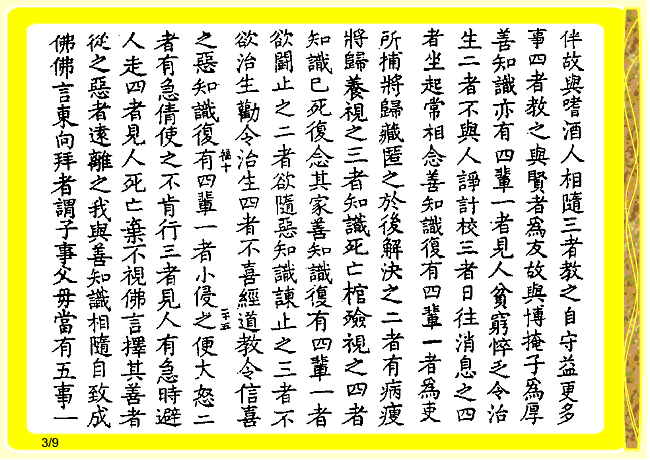 伴故與嗜酒人相隨三者教之自守益更多
事四者教之與賢者為友故與博掩子為厚
善知識亦有四輩一者見人貧窮悴乏令治
生二者不與人諍計校三者日往消息之四
者坐起常相念善知識復有四輩一者為吏
所捕將歸藏匿之於後解決之二者有病瘦
將歸養視之三者知識死亡棺殮視之四者
知識已死復念其家善知識復有四輩一者
欲鬪止之二者欲隨惡知識諫止之三者不
欲治生勸令治生四者不喜經道教令信喜
之惡知識復有四輩一者小侵之便大怒二
福十
二十五
者有急倩使之不肯行三者見人有急時避
人走四者見人死亡棄不視佛言擇其善者
從之惡者遠離之我與善知識相隨自致成
佛佛言東向拜者謂子事父母當有五事一
3/9